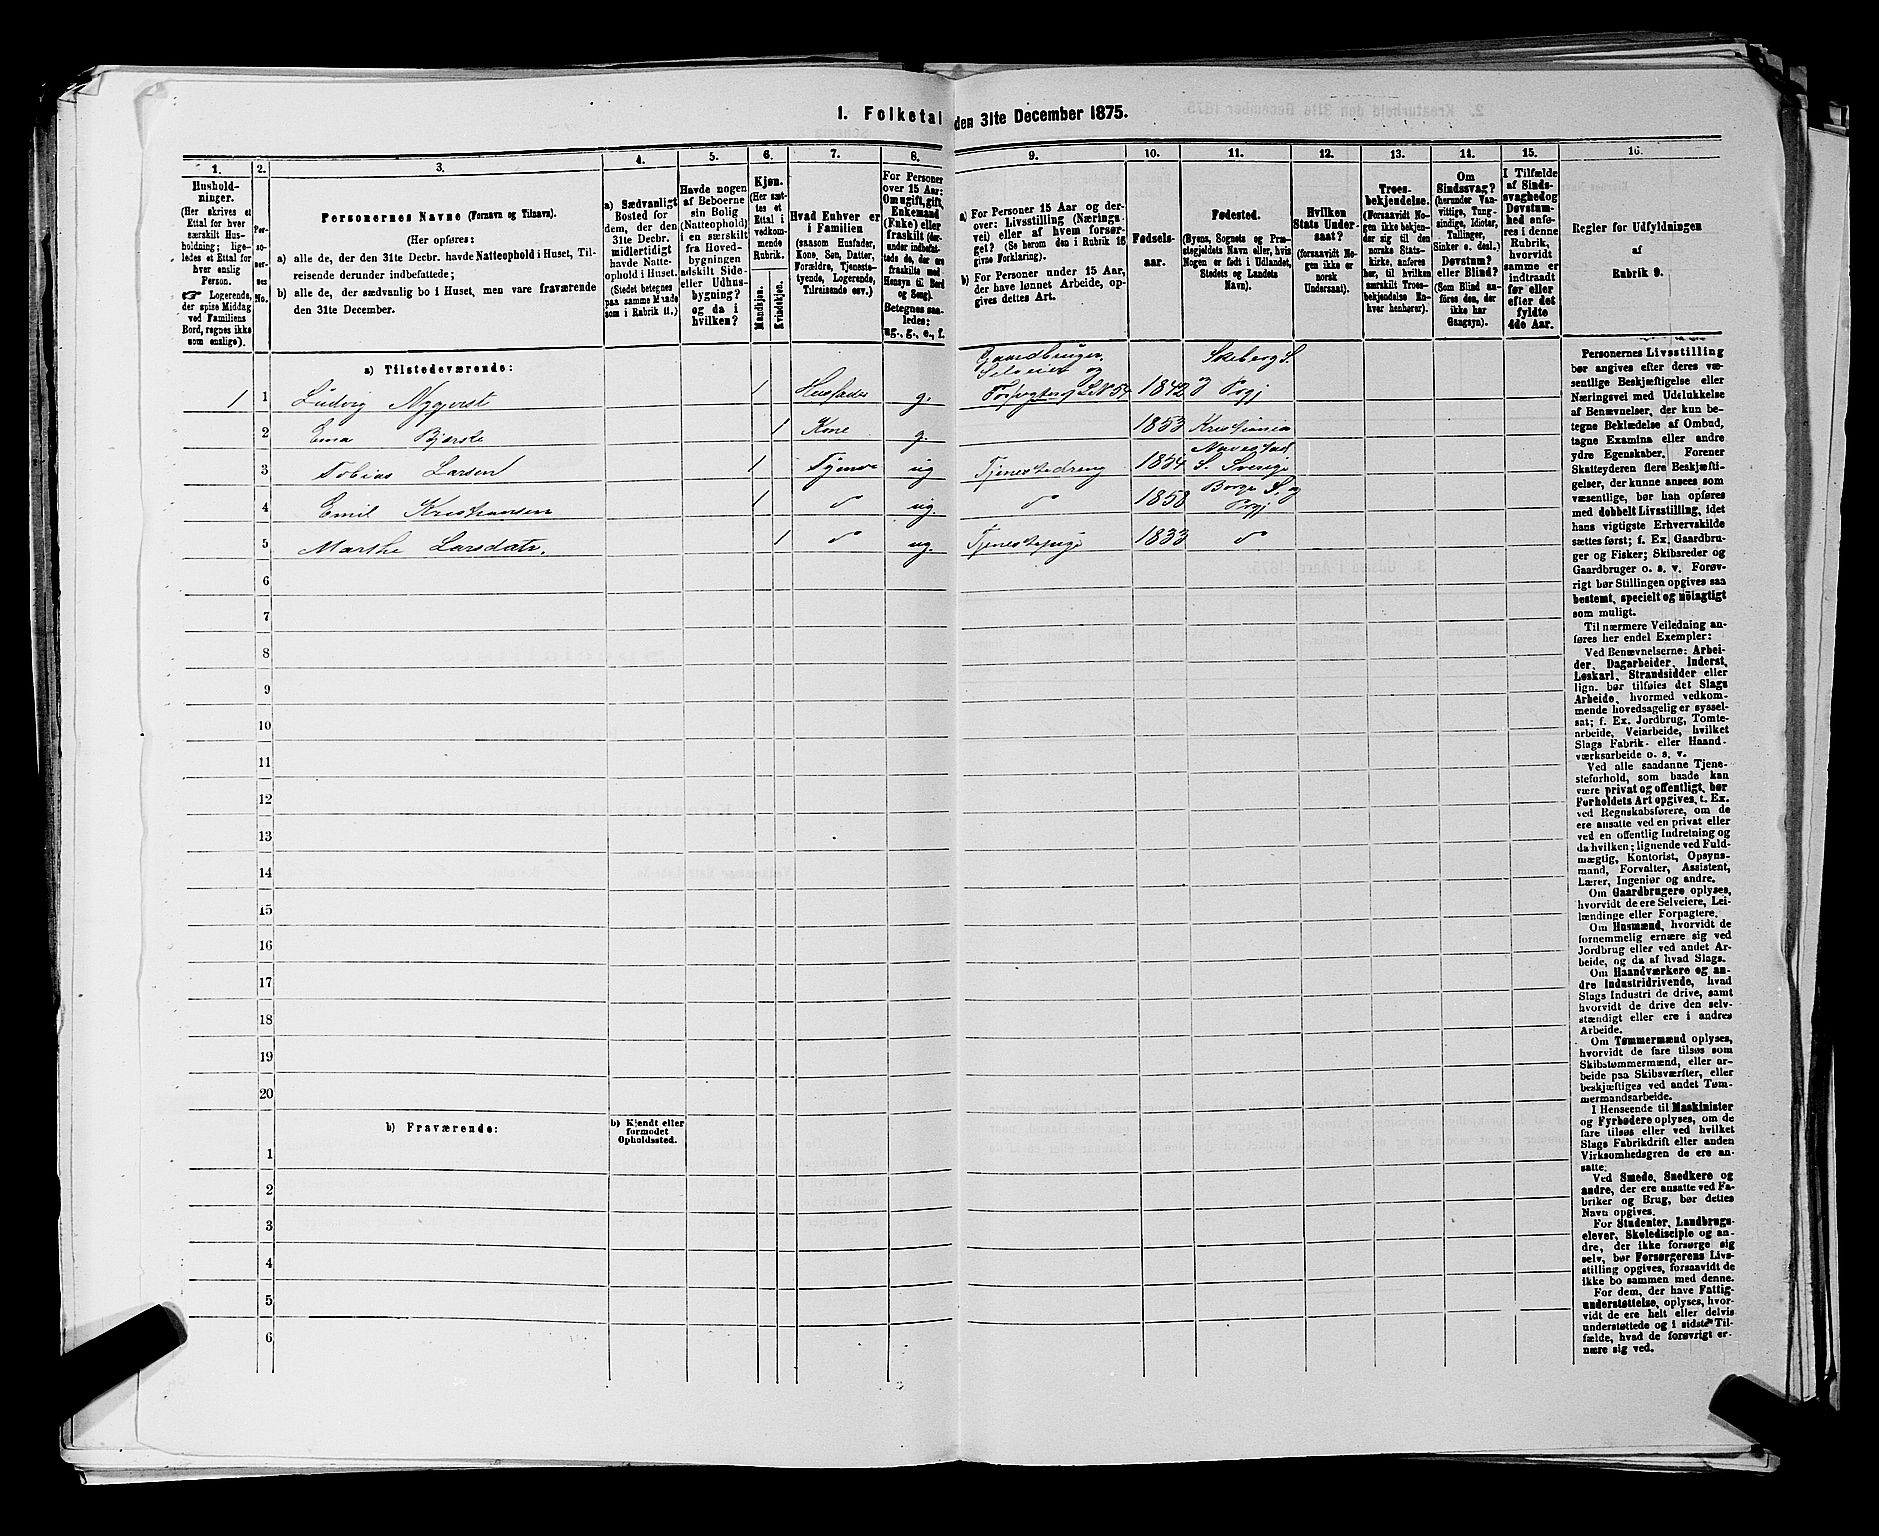 1. Folketal den 31te December 1875.
1. 2. 3. 4. 5. 6. 7. 8. 9. 10. 11. 12. 13. 14. 15. 16.
Hushold-
ninger.
(Her skrives et
Ettal for hver
særskilt Hus-
holdning; lige-
ledes et Ettal for
hver enslig
Person.
☞ Logerende,
der spise Middag
ved Familiens
Bord, regnes ikke
som enslige).
Per-
so-
ner-
nes
No.
Personernes Navne (Fornavn og Tilnavn).
(Her opføres:
a) alle de, der den 31te Decbr. havde Natteophold i Huset, Til-
reisende derunder indbefattede;
b) alle de, der sædvanlig bo i Huset, men vare fraværende
den 31te December.
a) Sædvanligt
Bosted for
dem, der den
31te Decbr.
midlertidigt
havde Natte-
ophold i Huset.
(Stedet betegnes
paa samme Maade
som i Rubrik 11.)
Havde nogen
af Beboerne
sin Bolig
(Natteophold)
i en særskilt
fra Hoved-
bygningen
adskilt Side-
eller Udhus-
bygning?
og da i
hvilken?
Kjøn.
(Her sæt-
tes et
Ettal i
vedkom-
mende
Rubrik.
Mandkjøn.
Kvindekjøn.
Hvad Enhver er
i Familien
(saasom Husfader,
Kone, Søn, Datter,
Forældre, Tjeneste-
tyende, Logerende,
Tilreisende osv.)
For Personer
over 15 Aar:
Om ugift, gift,
Enkemand
(Enke) eller
fraskilt (der-
under indbefat-
tede de, der ere
fraskilte med
Hensyn til Bord
og Seng).
Betegnes saa-
ledes:
ug., g., e., f.
a) For Personer 15 Aar og der-
over: Livsstilling (Nærings-
vei) eller af hvem forsør-
get? (Se herom den i Rubrik 16
givne Forklaring).
b) For Personer under 15 Aar,
der have lønnet Arbeide, op-
gives dettes Art.
Fødsels-
aar.
Fødested.
(Byens, Sognets og Præ-
stegjeldets Navn eller, hvis
Nogen er født i Udlandet,
Stedets og Landets
Navn).
Hvilken
Stats Under-
saat?
(forsaavidt No-
gen ikke er
norsk
Undersaat).
Troes-
bekjendelse.
(Forsaavidt No-
gen ikke bekjen-
der sig til den
norske Stats-
kirke, anføres
her, til hvilken
særskilt Troes-
bekjendelse En-
hver henhører).
Om
Sindssvag?
(herunder Van-
vittige, Tung-
sindige, Idioter,
Tullinger,
Sinker o. desl.)
Døvstum?
eller Blind?
(Som Blind an-
føres den, der
ikke har
Gangsyn).
I Tilfælde
af Sinds-
svaghed og
Døvstum-
hed anfø-
res i denne
Rubrik,
hvorvidt
samme er
indtraadt
før eller
efter det
fyldte
4de Aar.
Regler for Udfyldningen
af
Rubrik 9.
a) Tilstedeværende:
1 1 Ludvig Nyqvist 1 Husfader g. Gaardbruger, Selveier og 1842 Skeberg S. og Prgj
2 Ema Bjerke 1 Kone g. 1853 Kristiania
3 Tobias Larsen 1 Tjener ug Tjenestedreng 1854 S. Sverige
4 Emil Kristiansen 1 " ug. " 1858 Borge S. og Prgj
5 Marthe Larsdatr. 1 " ug. Tjenestepige 1833 "
6
7
8
9
10
11
12
13
14
15
16
17
18
19
20
b) Fraværende:
b) Kjendt eller
formodet
Opholdssted.
1
2
3
4
5
6
Personernes Livsstilling
bør angives efter deres væ-
sentlige Beskjæftigelse eller
Næringsvei med Udelukkelse
af Benævnelser, der kun be-
tegne Beklædelse af Ombud,
tagne Examina eller andre
ydre Egenskaber. Forener
Skatteyderen flere Beskjæfti-
gelser, der kunne ansees som
væsentlige, bør han opføres
med dobbelt Livsstilling, idet
hans vigtigste Erhvervskilde
sættes først; f. Ex. Gaardbru-
ger og Fisker; Skibsreder og
Gaardbruger o. s. v. Forøv-
rigt bør Stillingen opgives saa
bestemt, specielt og nöiagtigt
som muligt.
Til nærmere Veiledning an-
føres her endel Exempler:
Ved Benævnelserne: Arbei-
der, Dagarbeider, Inderst,
Løskarl, Strandsidder eller
lign. bør tilføies det Slags
Arbeide, hvormed vedkom-
mende hovedsagelig er syssel-
sat; f. Ex. Jordbrug, Tomte-
arbeide, Veiarbeide, hvilket
Slags Fabrik- eller Haand-
værksarbeide o. s. v.
Ved alle saadanne Tjene-
steforhold, som baade kan
være privat og offentligt, bør
Forholdets Art opgives, t. Ex.
ved Regnskabsførere, om de
ere ansatte ved en privat eller
ved en offentlig Indretning og
da hvilken; lignende ved Fuld-
mægtig, Kontorist, Opsyns-
mand, Forvalter, Assistent,
Lærer, Ingeniør og andre.
Om Gaardbrugere oplyses,
hvorvidt de ere Selveiere, Lei-
lændinge eller Forpagtere.
Om Husmænd, hvorvidt de
fornemmelig ernære sig ved
Jordbrug eller ved andet Ar-
beide, og da af hvad Slags.
Om Haandværkere og an-
dre Industridrivende, hvad
Slags Industri de drive, samt
hvorvidt de drive den selv-
stændigt eller ere i andres
Arbeide.
Om Tømmermænd oplyses,
hvorvidt de fare tilsøs som
Skibstømmermænd, eller ar-
beide paa Skibsværfter, eller
beskjæftiges ved andet Tøm-
mermandsarbeide.
I Henseende til Maskinister
og Fyrbødere oplyses, om de
fare tilsøs eller ved hvilket
Slags Fabrikdrift eller anden
Virksomhedsgren de ere an-
satte.
Ved Smede, Snedkere og
andre, der ere ansatte ved Fa-
briker og Brug, bør dettes
Navn opgives.
For Studenter, Landbrugs-
elever, Skoledisciple og an-
dre, der ikke forsørge sig
selv, bør Forsørgerens Livs-
stilling opgives, forsaavidt de
ikke bo sammen med denne.
For dem, der have Fattig-
understøttelse, oplyses, hvor-
vidt de ere helt eller delvis
understøttede og i sidste Til-
fælde, hvad de forøvrigt er-
nære sig ved.